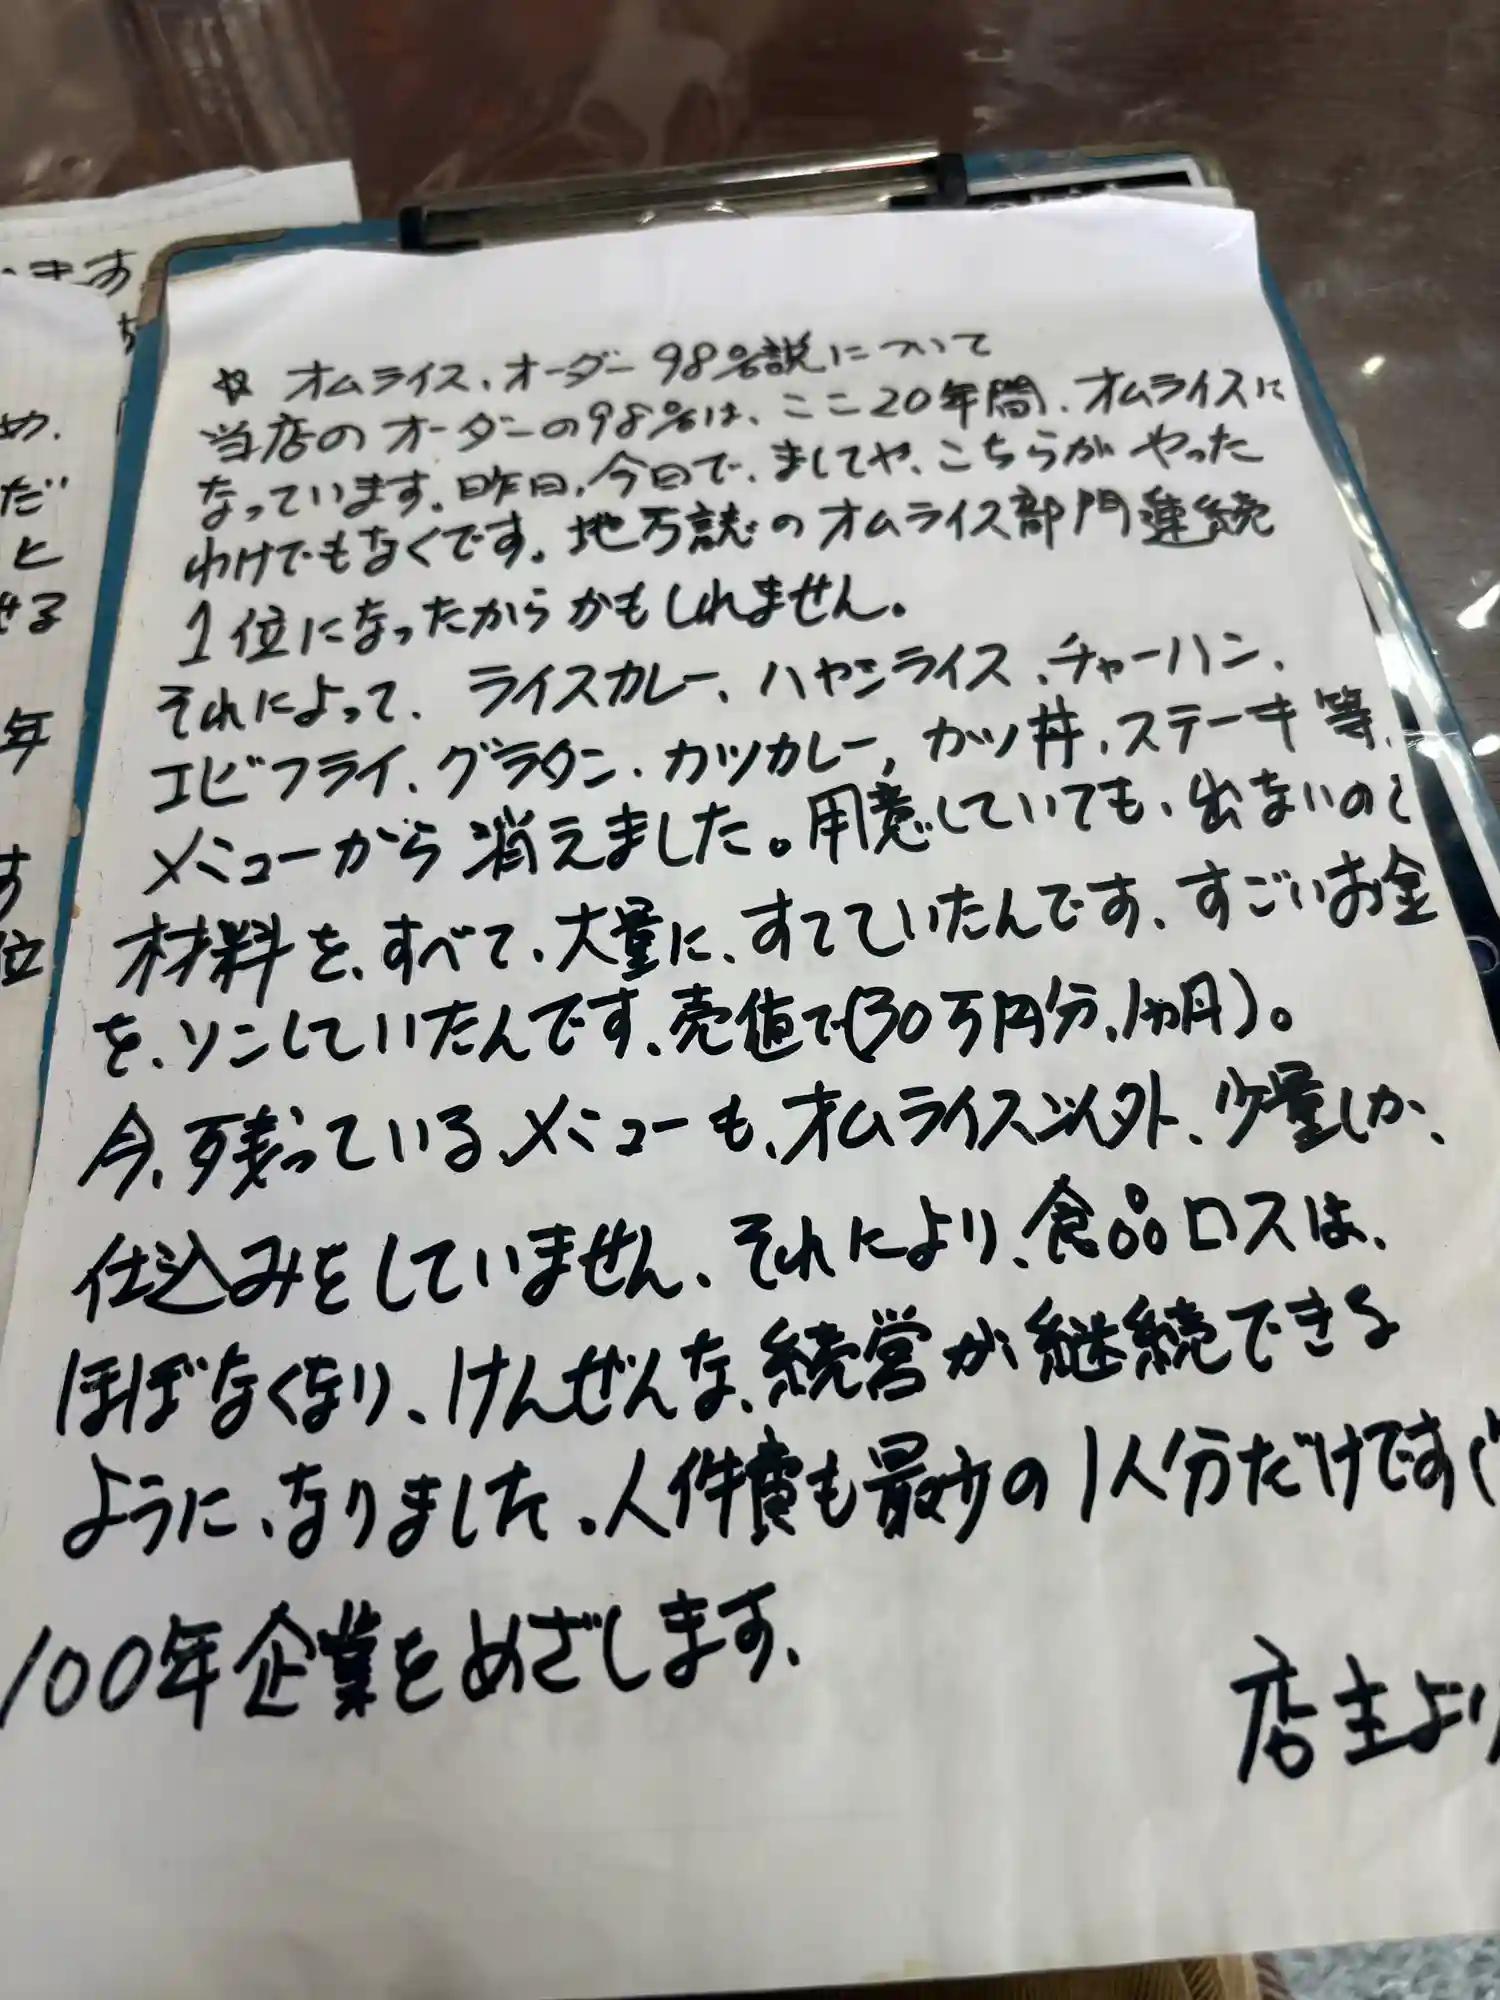 ☆ オムライス、オーダー98%説について
当店のオーダーの98%は、ここ20年間、オムライスに
なっています。昨日、今日で、ましてや、こちらがやった
わけでもなくです。地方誌のオムライス部門連続
1位になったからかもしれません。
それによって、ライスカレー、ハヤシライス、チャーハン、
エビフライ、グラタン、カツカレー、カツ丼、ステーキ等、
メニューから消えました。用意していても、出ないので
材料を、すべて、大量に、すてていたんです、すごいお金
を、ソンしていたんです、売値で(30万円分、1ヵ月)。
今、残っている、メニューも、オムライス以外、少量しか、
仕込みをしていません、それにより、食品ロスは、
ほぼなくなり、けんぜんな、経営が継続できる
ように、なりました、人件費も最少の1人分だけです(
100年企業をめざします、
店主より
います
め、
だ
と
せる
年
す
位